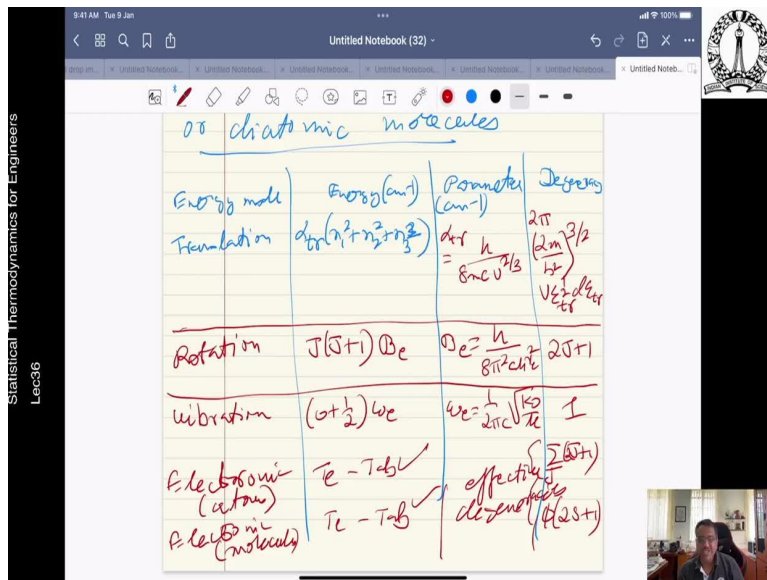 9:41 AM Tue 9 Jan
100%
Untitled Notebook (32)
Untitled Notebook...
Untitled Notebook...
Untitled Notebook...
Untitled Notebook...
Untitled Notebook...
Untitled Notebook...
Untitled Noteb...
Statistical Thermodynamics for Engineers
Lec36
or diatomic molecules
Energy mode Energy (cm-1) Parameter (cm-1) Degeneracy
Translation α_tr(n₁²+n₂²+n₃²) α_tr = h/8mcV^2/3 2π(2m/h²)^3/2 V ε_tr^1/2 dε_tr
Rotation J(J+1) Be Be = h/8π²cμr_e² 2J+1
Vibration (υ+1/2) ωe ωe = 1/2πc √k0/μ 1
Electronic (atoms) Te - Tab ✓ effective degeneracies Σ(2J+1)
Electronic (molecules) Te - Tab ✓ φ(2S+1)